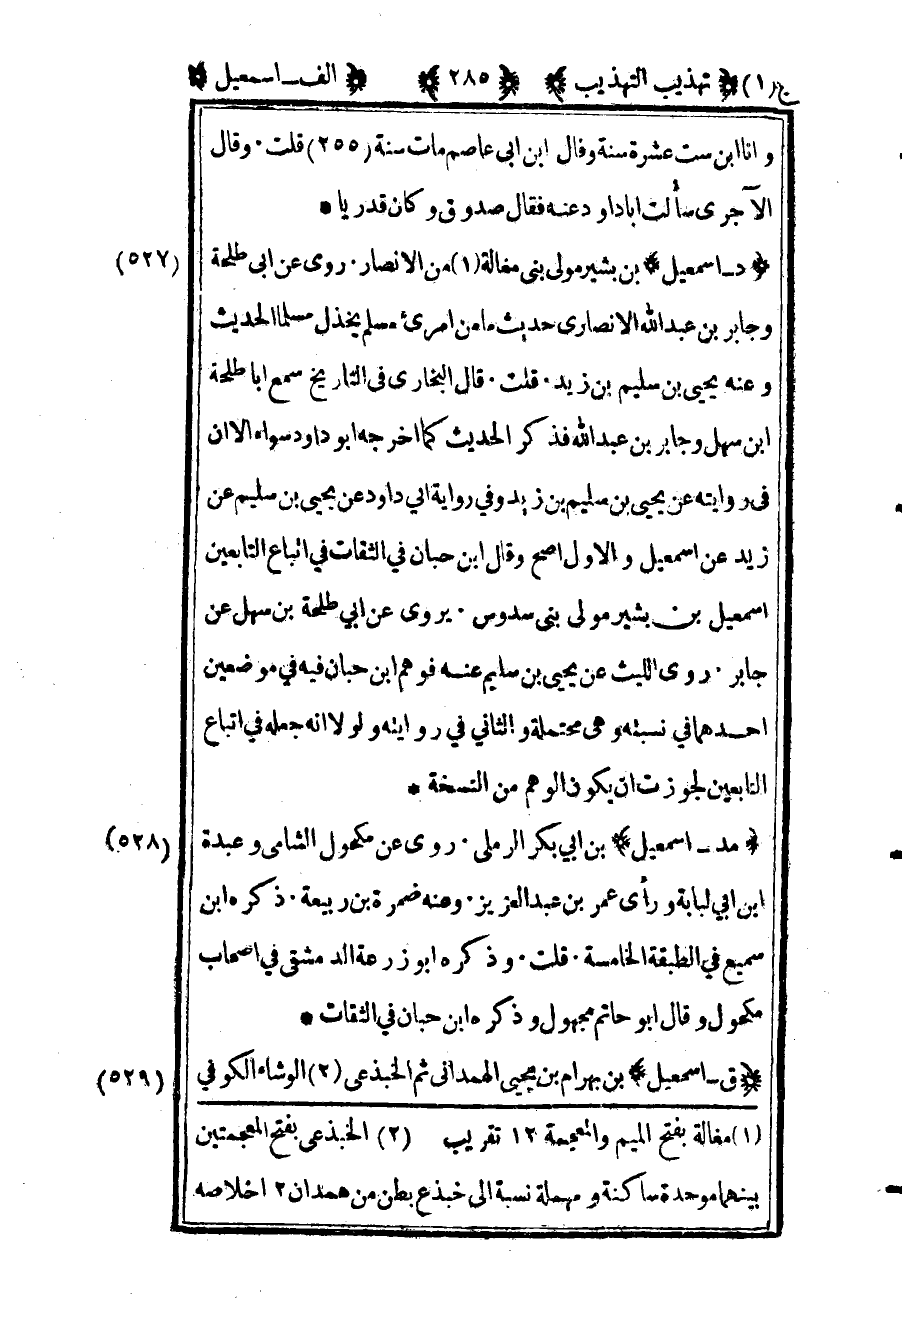 ج (١) ﴿ تهذيب التهذيب ﴾ ﴿ ٢٨٥ ﴾ ﴿ الف ـ اسمعيل ﴾
و انا ابن ست عشرة سنة وقال ابن ابى عاصم مات سنة (٢٥٥) قلت · وقال
الآجرى سألت اباداود عنه فقال صدوق وكان قدريا *
﴿ د ـ اسمعيل ﴾ بن بشير مولى بنى مغالة (١) من الانصار · روى عن ابى طلحة (٥٢٧)
وجابر بن عبدالله الانصارى حديث مامن امرئ مسلم يخذل مسلما الحديث
وعنه يحيى بن سليم بن زيد · قلت · قال البخارى فى التاريخ سمع ابا طلحة
ابن سهل وجابر بن عبدالله فذكر الحديث كما اخرجه ابو داود سواه الا ان
فى روايته عن يحيى بن سليم بن زيد وفي رواية ابي داود عن يحيى بن سليم عن
زيد عن اسمعيل و الاول اصح وقال ابن حبان في الثقات في اتباع التابعين
اسمعيل بن بشير مولى بنى سدوس · يروى عن ابي طلحة بن سهل عن
جابر · روى الليث عن يحيى بن سليم عنه فوهم ابن حبان فيه في موضعين
احدهما في نسبته وهى محتملة و الثاني في روايته ولولا انه جعله في اتباع
التابعين لجوزت ان يكون الوهم من النسخة *
﴿ مد ـ اسمعيل ﴾ بن ابي بكر الرملى · روى عن مكحول الشامى وعبدة (٥٢٨)
ابن ابي لبابة ورأى عمر بن عبدالعزيز · وعنه ضمرة بن ربيعة · ذكره ابن
سميع في الطبقة الخامسة · قلت · وذكره ابو زرعة الدمشقى في اصحاب
مكحول وقال ابو حاتم مجهول وذكره ابن حبان في الثقات *
﴿ ق ـ اسمعيل ﴾ بن بهرام بن يحيى الهمدانى ثم الخبذعى (٢) الوشاء الكوفي (٥٢٩)
(١) مغالة بفتح الميم والمعجمة ١٢ تقريب (٢) الخبذعى بفتح المعجمتين
بينهما موحدة ساكنة و مهملة نسبة الى خبذع بطن من همدان ١٢ خلاصه